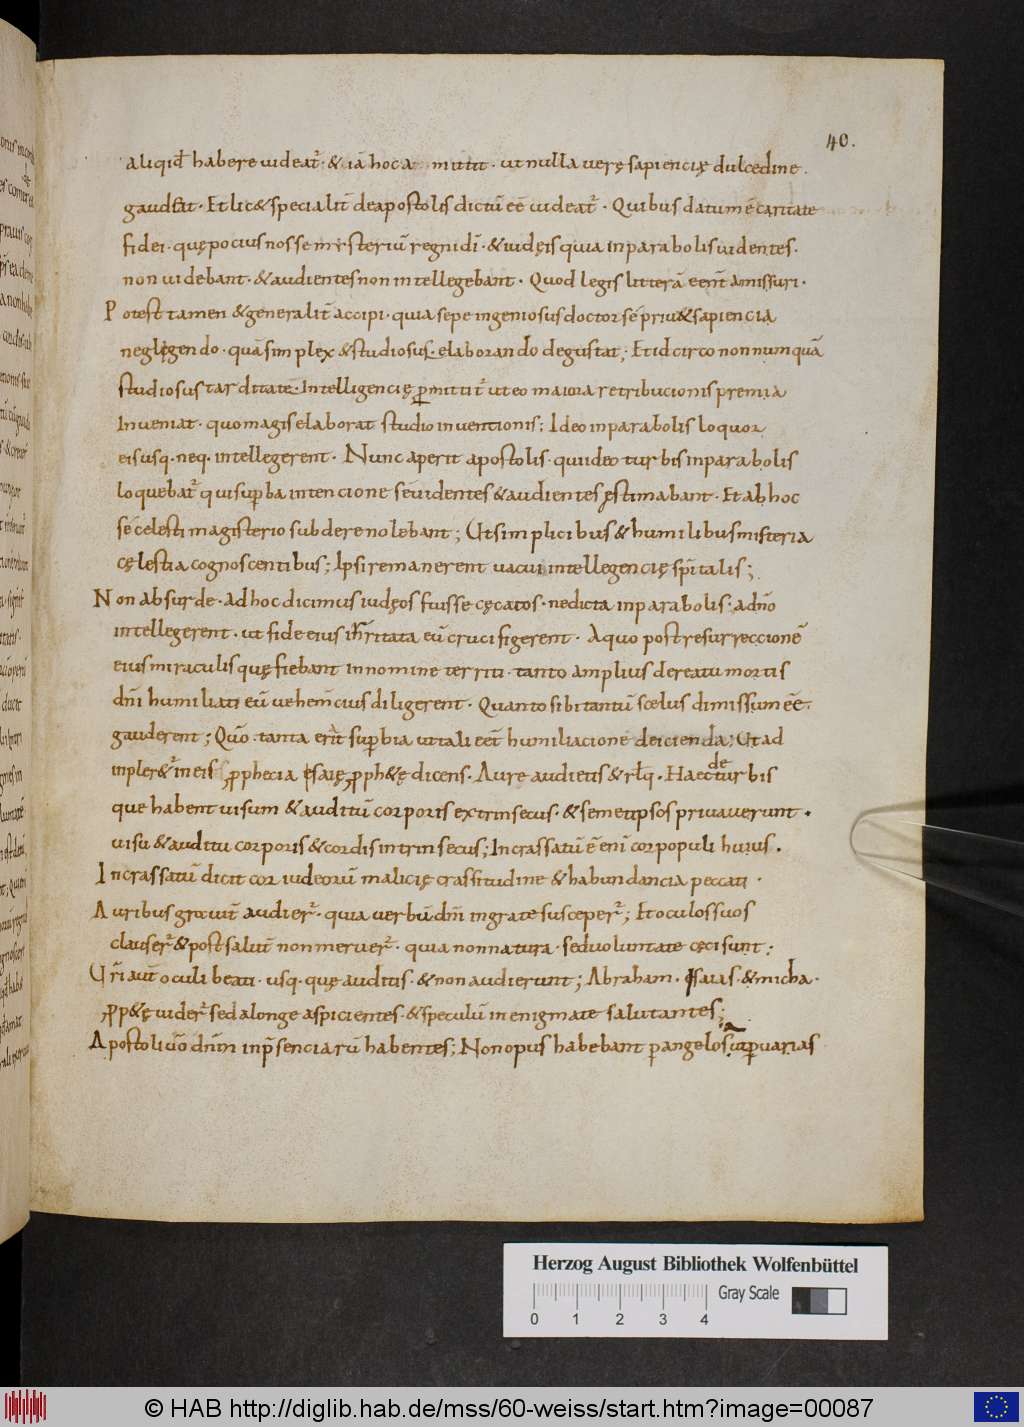 40.
aliqid̄ habere uideat̄. & iā hoc a mittit. ut nulla uerę sapiencię dulcedine.
gaudeat. Et lic& specialit̄ de apostolis dictū eē uideat̄. Quibus datum ē caritate
fidei. quę pocius nosse mysteriū regni dī. & iudęis quia in parabolis uidentes.
non uidebant. & audientes non intellegebant. Quod legis litterā eent̄ amissuri.
Potest tamen & generalit̄ accipi. quia sepe ingeniosus doctor sē priu& sapiencia
neglegendo. quā simplex & studiosus. elaborando degustat; Et idcirco nonnumquā
studiosus tarditatē. Intelligencię pmittit̄ ut eo maiora retribucionis premia
Inueniat. quo magis elaborat studio inuentionis; Ideo in parabolis loquor
eis usq. neq. intellegerent. Nunc aperit apostolis. qui ideo turbis in parabolis
loquebat̄ qui supba intencione sē uidentes & audientes ęstimabant. Et ab hoc
sē celesti magisterio subdere nolebant; Ut simplicibus & humilibus misteria
cęlestia cognoscentibus; Ipsi remanerent uacui intellegencię spītalis;
Non absurde. ad hoc dicimus iudęos fuisse cęcatos. ne dicta in parabolis. a dn̄o
intellegerent. ut fide eius irritata eū crucifigerent. A quo post resurreccionē
eius miraculis quę fiebant in nomine territi. tanto amplius de reatu mortis
dn̄i humiliati eū uehem̄cius diligerent. Quanto sibi tantū scelus dimissum eē.
gauderent; Quō. tanta erit supbia ut tali eet̄ humiliacione deicienda; Ut ad
inpler&̄ in eis pphecia esaię pph&ę dicens. Aure audietis & rłq. Haec de turbis
que habent uisum & auditū corporis extrinsecus. & semetipsos priuauerunt.
uisu & auditu corporis & cordis intrinsecus; Incrassatū ē enī cor populi huius.
Incrassatū dicit cor iudeorū malicię crassitudine & habundancia peccati.
Auribus grauit̄ audier̄. quia uerbū dn̄i ingrate susceper̄; Et oculos suos
clauser̄ & post salut̄ non meruer̄. quia non natura. sed uoluntate cęci sunt;
Ur̄i aut̄ oculi beati. usq. quę auditis. & non audierunt; Abraham. esaias. & micha.
pph&ę uider̄ sed a longe aspicientes. & speculū in enigmate salutantes;
Apostoli uō dn̄m in p̄senciarū habentes; Non opus habebant p angelos ut p uarias
Herzog August Bibliothek Wolfenbüttel
Gray Scale
0 1 2 3 4
© HAB http://diglib.hab.de/mss/60-weiss/start.htm?image=00087